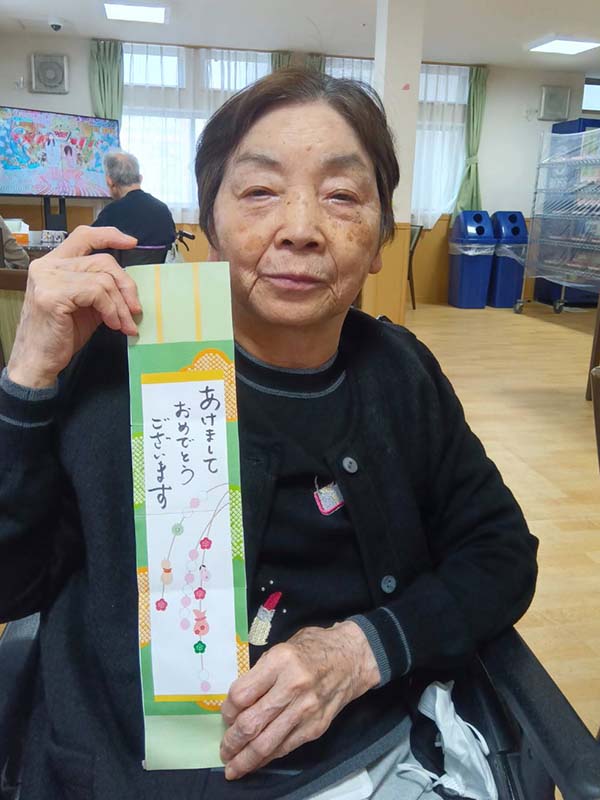 あけまして
おめでとう
ございます